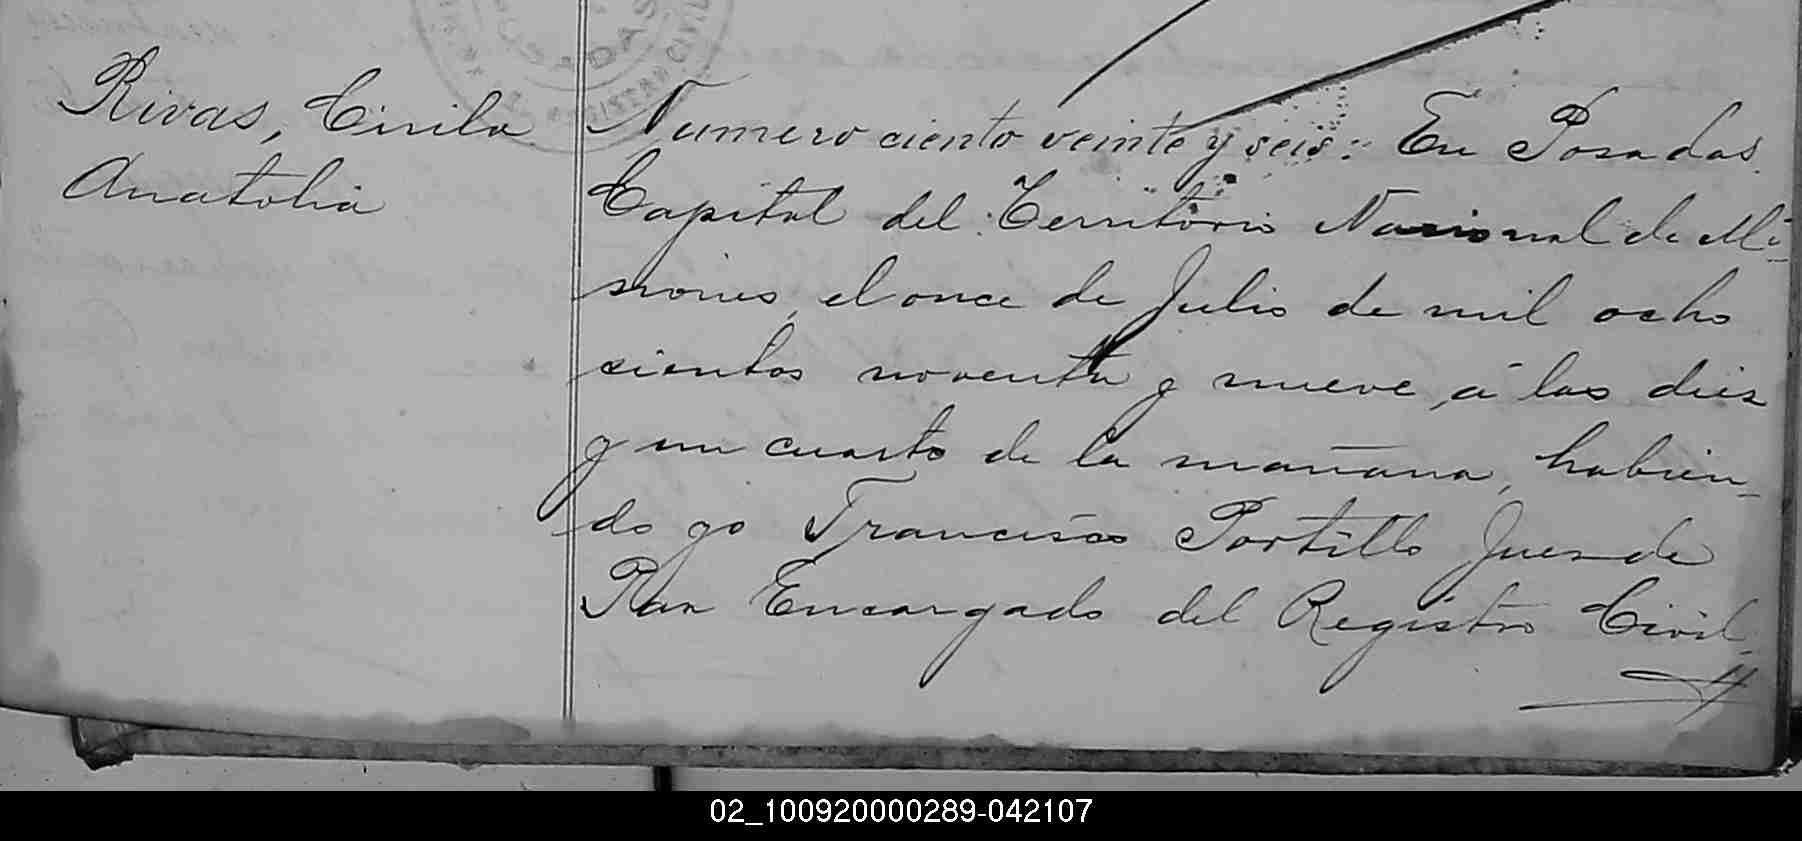 Rivas, Cirila
Anatolia
Numero ciento veinte y seis: En Posadas
Capital del Territorio Nacional de Mi-
siones, el once de Julio de mil ocho
cientos noventa y nueve, á las diez
y un cuarto de la mañana, habien-
do yo Francisco Portillo Juez de
Paz Encargado del Registro Civil
02_100920000289-042107